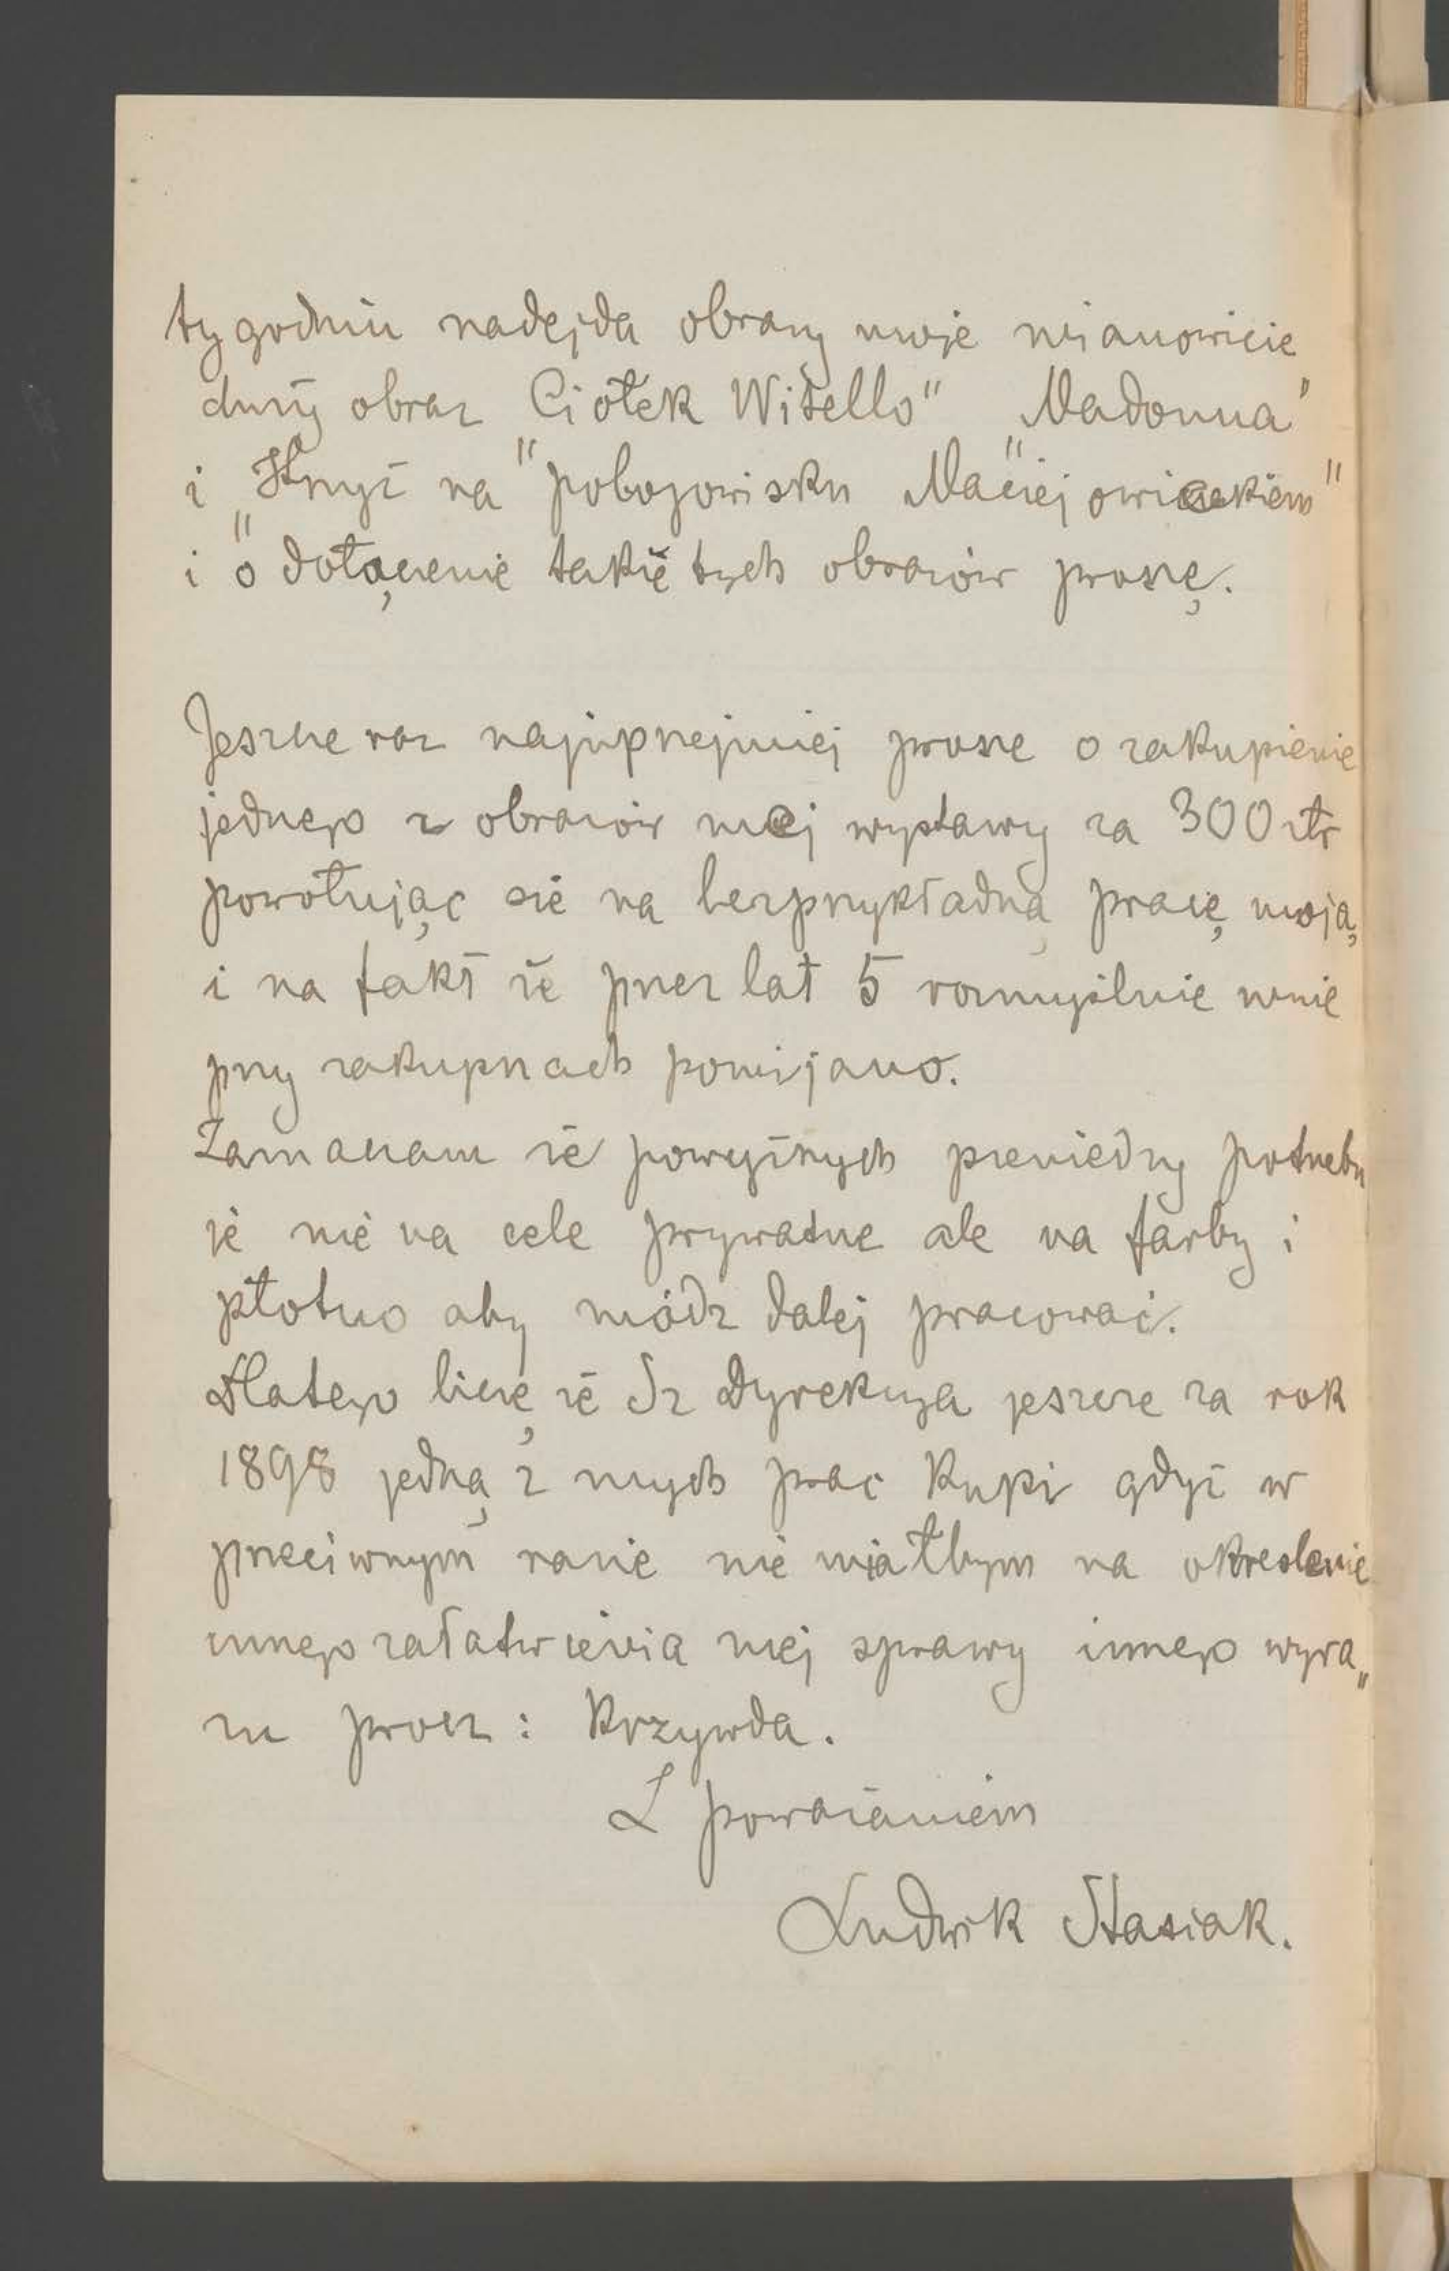 tygodniu nadejda obrazy moje mianowicie
duży obraz Ciołek Witello" Madonna"
i „Krzyż na "pobojowisku Maciejowickiem"
i o dołączenie takie tych obrazów proszę.
Jeszcze raz najuprzejmiej prosze o zakupienie
jednego z obrazów mej wystawy za 300 złr
powołując sie na bezprzykładną pracę moją,
i na fakt że przez lat 5 rozmyślnie mnie
przy zakupnach pomijano.
Zaznaczam że powyższych pieniedzy potrzebu
je nie na cele prywatne ale na farby i
płotno aby módz dalej pracować.
Dlatego liczę że Sz Dyrekcya jeszcze za rok
1898 jedną z mych prac kupi gdyż w
przeciwnym razie nie miałbym na okreslenie
innego załatwienia mej sprawy innego wyra„
zu procz: Krzywda.
Z poważaniem
Ludwik Stasiak.